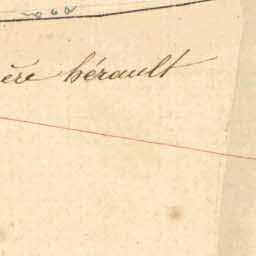 ère hérault